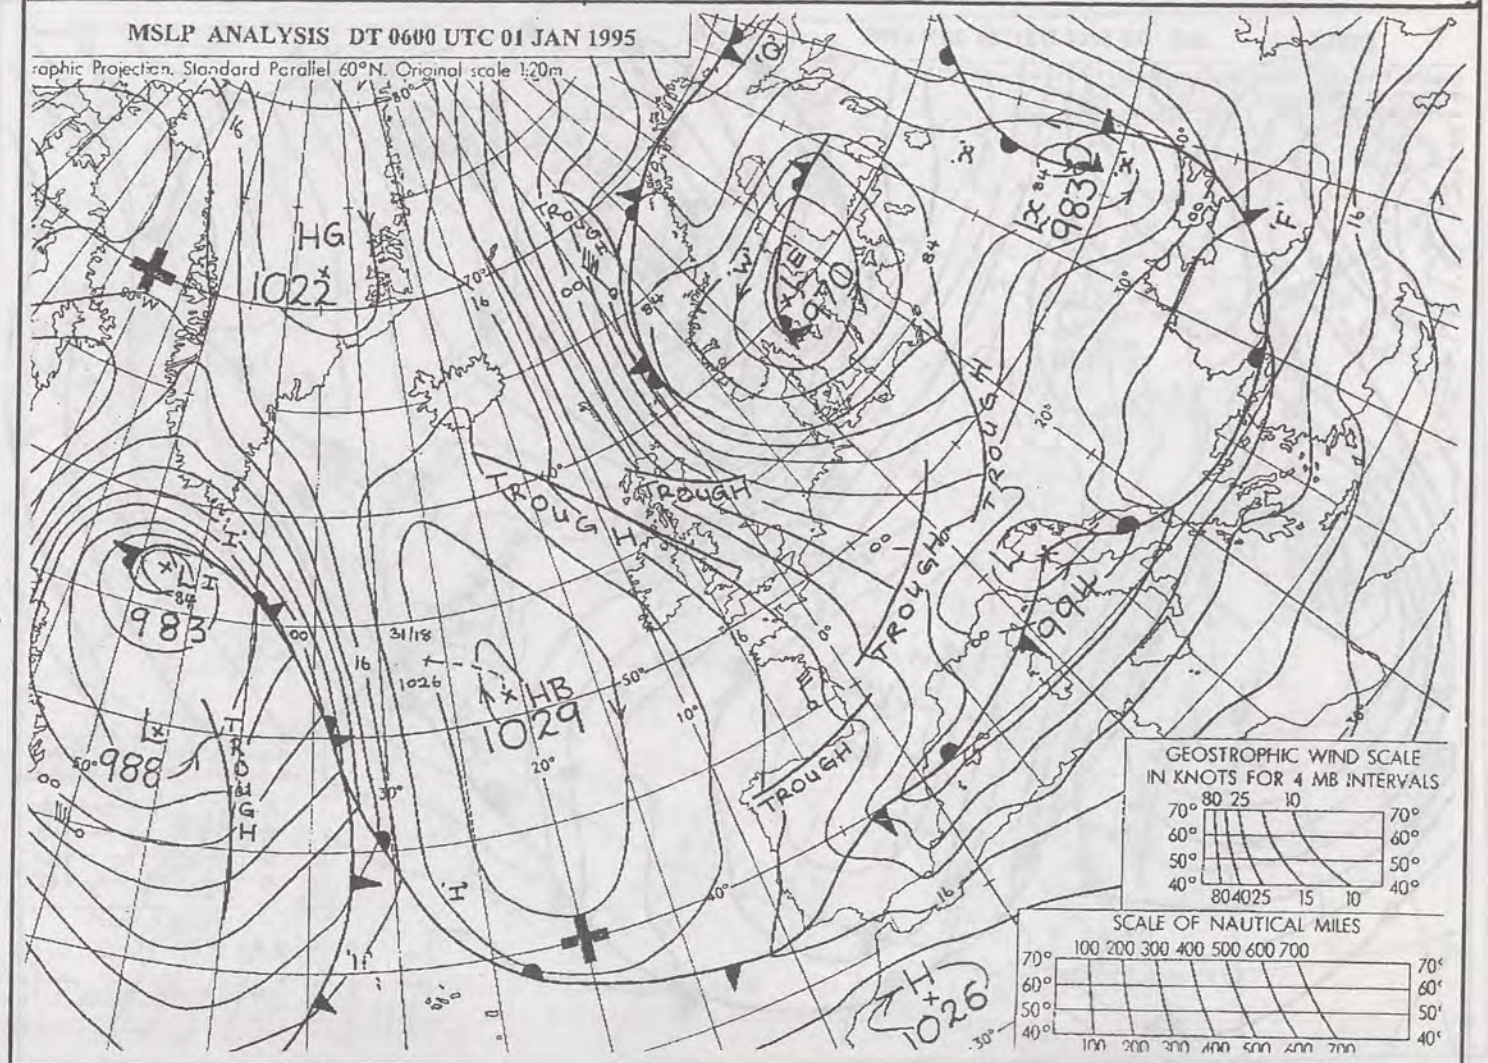 MSLP ANALYSIS DT 0600 UTC 01 JAN 1995
raphic Projection. Standard Parallel 60°N. Original scale 1:20m
80°
'Q'
16
HG
1022
TROUGH
00
70°
16
84
'W'
LE
970
84
'X'
LX
84
983
D
'X'
'F'
16
00
10°
20°
TROUGH
60°
TROUGH
TROUGH
TROUGH
00
L
994
00
LI
84
983
00
16
31/18
1026
HB
1029
50°
0°
10°
20°
L
988
50°
00
TROUGH
30°
'H'
TROUGH
40°
16
H
1026
30°
GEOSTROPHIC WIND SCALE
IN KNOTS FOR 4 MB INTERVALS
80 25 10
70° 70°
60° 60°
50° 50°
40° 40°
80 40 25 15 10
SCALE OF NAUTICAL MILES
100 200 300 400 500 600 700
70° 70°
60° 60°
50° 50°
40° 40°
100 200 300 400 500 600 700